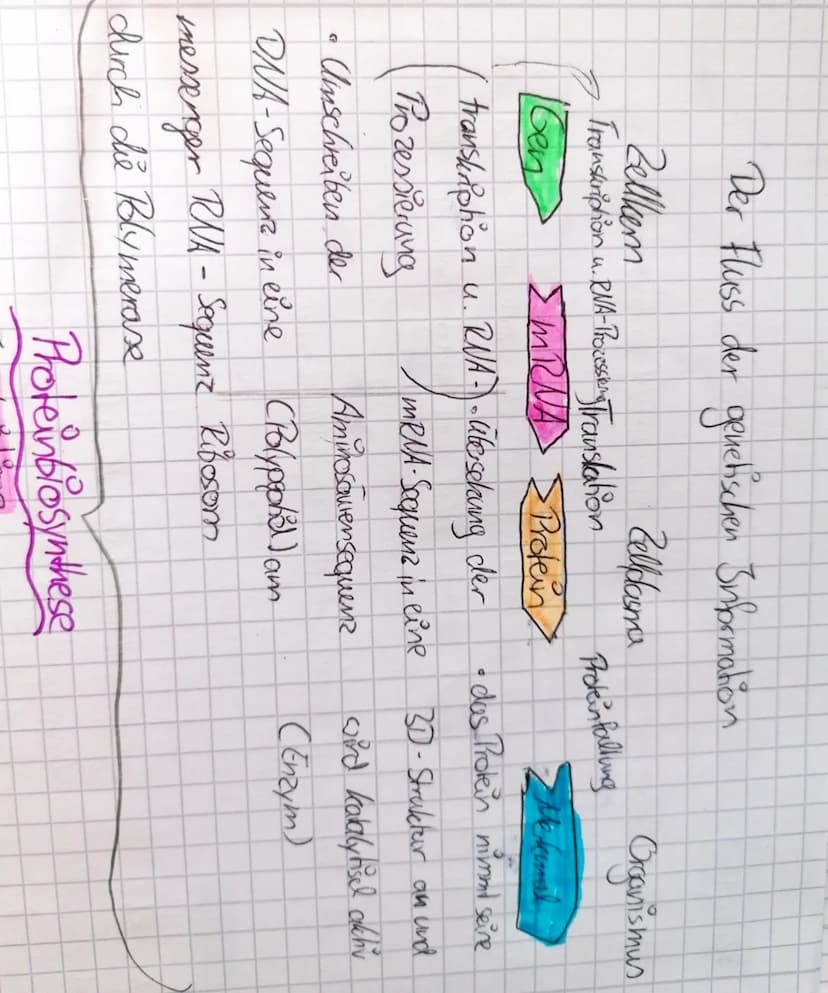 Der Fluss der genetischen Information
Zellkern Zellplasma Organismus
Transkription u. RNA-Prozessierung Translation Proteinfaltung
Gen mRNA Protein Merkmal
(transkription u. RNA- • Übersetzung der • das Protein nimmt seine
Prozessierung) mRNA-Sequenz in eine 3D-Struktur an und
• Umschreiben der Aminosäuensequenz wird katalytisch aktiv
DNA-Sequenz in eine (Polypeptid) am (Enzym)
messenger RNA-Sequenz Ribosom
durch die Polymerase
Proteinbiosynthese